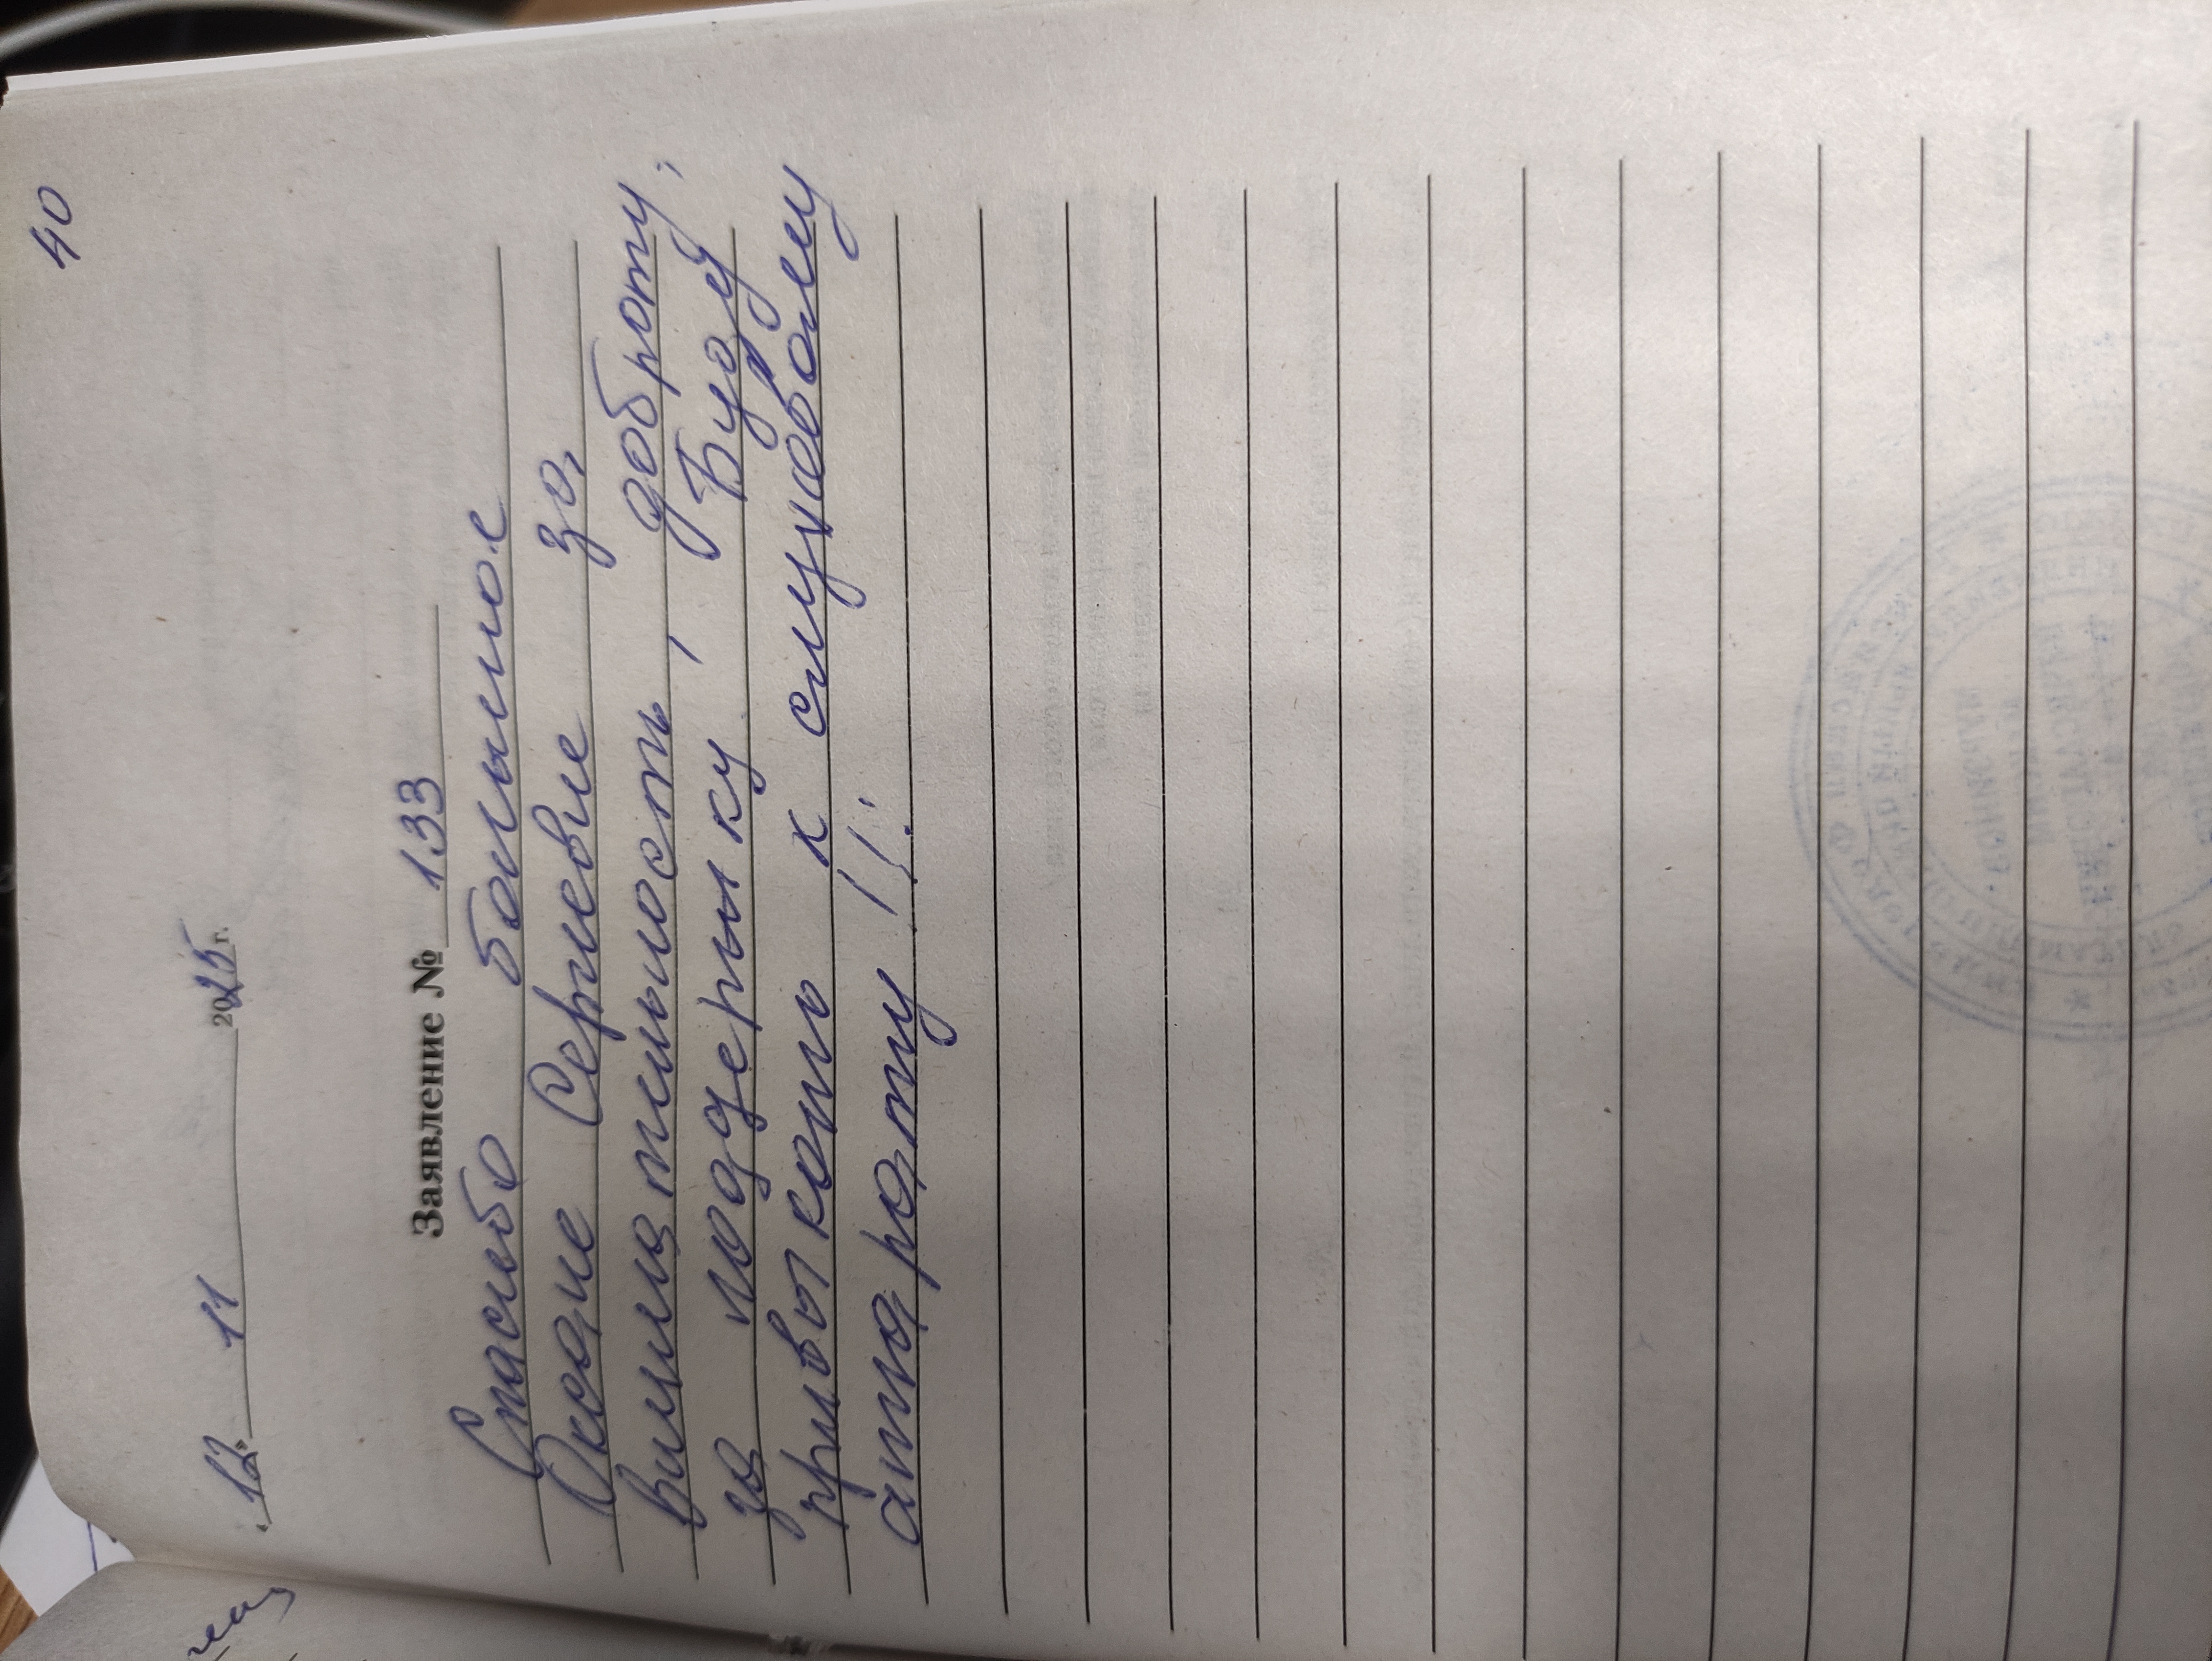 40
12. 11 2025 г.
Заявление № 133
Спасибо большое
Оксане Сергеевне за
внимательность, доброту,
за подержку. Буду
привыкать к слуховому
аппарату!!